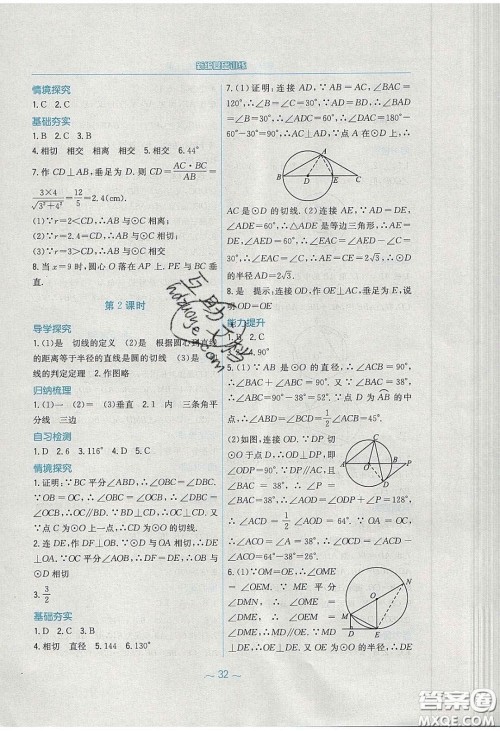 情境探究
1.C 2.C
基础夯实
1.B 2.C 3.B
4.相切 相交 相离 相交 5.相交 6.44°
7.作CD⊥AB,垂足为D.则CD=AC·BC/AB
=3×4/√3²+4²=12/5=2.4(cm).
(1)∵r=2<CD,∴AB与⊙C相离;
(2)∵r=2.4=CD,∴AB与⊙C相切;
(3)∵r=3>CD,∴AB与⊙C相交.
8.当x=9时,圆心O落在AP上.PE与BC垂
直.
第2课时
导学探究
1.(1)是 切线的定义 (2)是 根据圆心到直线
的距离等于半径的直线是圆的切线 (3)是
线的判定定理 2.作图略
归纳梳理
1.(1)一 (2)= (3)垂直 2.1 内 三条角平
分线 三边
自习检测
1.D 2.6 3.116° 4.D 5.D
情境探究
1.证明:∵BC平分∠ABD,∴∠OBC=∠DBC.
∵OB=OC,∴∠OBC=∠OCB,∴∠DBC=
∠OCB,∴OC∥BD.∵BD⊥CD,∴OC⊥CD.又
∵点C为⊙O上一点,∴CD为⊙O的切线.
2.如图,作OE⊥DF.∵OD平分∠ADE,∴∠DE
⊥OA.∴OC=OE.∴DF=DE.∴DF与
⊙O相切
3.3/2
基础夯实
1.D 2.C 3.A
4.相切 直径 5.144 6.130°
7.(1)证明,连接AD,∵AB=AC,∠BAC=
120°,∴∠B=∠C=30°,∵AD=BD,∴∠BAD
=∠B=30°,∴∠ADC=60°,∴∠DAC=180°
-60°-30°=90°,∴AD⊥AC,∵点A在⊙D上,∴
A
B
D
E
C
AC是⊙D的切线.(2)连接AE,∵AD=DE,
∠ADE=60°,∴△ADE是等边三角形,∴AE=
DE,∠AED=60°,∴∠EAC=∠AED-∠C=
30°,∴∠EAC=∠C,∴AE=CE=2√3,∴⊙D
的半径AD=2√3.
8.是 提示:连接OC,OD.设OF⊥DE,说
明OD=OE
能力提升
1.B 2.C 4.90°
5.(1)∵AB是⊙O的直径,∴∠ACB=90°,
∴∠BAC+∠ABC=90°.又∵∠BAC=38°,
∴∠ABC=90°-38°=52°.∵点D为AB的中
点,∴∠ACD=∠BCD=1/2∠ACB=45°.
(2)如图,连接OD.∵DP切
⊙O于点D,∴OD⊥DP,即
∠ODP=90°.∵DP∥AC,
∠BAC=38°,∴∠P=38°,
∴∠AOD=∠ODP+∠P=128°,
∴∠ACD=1/2∠AOD=64°.
∵OC=OA,∴∠OCA=38°,∴∠OCD=
∠ACD-∠OCA=64°-38°=26°.
C
A
B
P
O
D
6.(1)∵OM=OE,∴∠OME=
∠OEM.∵ME平分
∠DMN,∴∠OME=
∠DME,∴∠OEM=
∠DME,∴DM∥OE.∵DM
⊥DE,∴OE⊥DE.又∵OE
为⊙O的半径,∴DE是⊙O
N
O
M
D
E
32